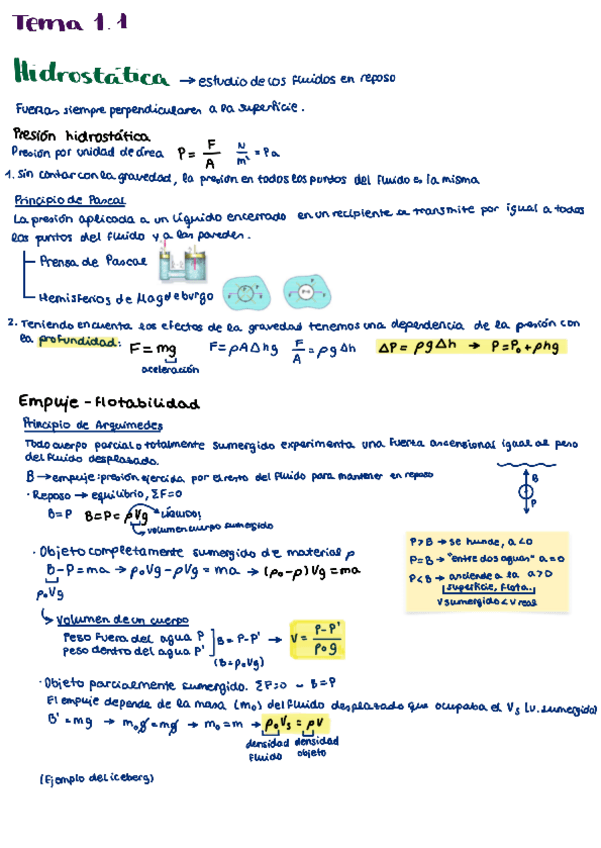 Tema 1.1
Hidrostática → estudio de los fluidos en reposo
Fuerzas siempre perpendiculares a la superficie.
Presión hidrostática
Presión por unidad de área P = F/A N/m² = Pa
1. Sin contar con la gravedad, la presión en todos los puntos del fluido es la misma
Principio de Pascal
La presión aplicada a un líquido encerrado en un recipiente se transmite por igual a todos
los puntos del fluido y a las paredes.
Prensa de Pascal
Hemisferios de Magdeburgo
2. Teniendo en cuenta los efectos de la gravedad tenemos una dependencia de la presión con
la profundidad: F = mg F = ρAΔhg F/A = ρgΔh ΔP = ρgΔh → P = P₀ + ρhg
aceleración
Empuje - flotabilidad
Principio de Arquímedes
Todo cuerpo parcial o totalmente sumergido experimenta una fuerza ascensional igual al peso
del fluido desplazado.
B → empuje: presión ejercida por el resto del fluido para mantener en reposo
· Reposo → equilibrio, ΣF=0
B = P B = P = ρVg líquido;
volumen cuerpo sumergido
B
P
P > B → se hunde, a < 0
P = B → "entre dos aguas" a = 0
P < B → asciende a la a > 0
superficie, flota.
V sumergido < V real
· Objeto completamente sumergido de material ρ
B - P = ma → ρ₀Vg - ρVg = ma → (ρ₀ - ρ)Vg = ma
ρ₀Vg
Volumen de un cuerpo
Peso fuera del agua P
peso dentro del agua P'
B = P - P' → V = P-P'/ρ₀g
(B = ρ₀Vg)
· Objeto parcialmente sumergido. ΣF=0 - B = P
El empuje depende de la masa (m₀) del fluido desplazado que ocupaba el Vs (v. sumergido)
B' = mg → m₀g = mg → m₀ = m → ρ₀Vs = ρV
densidad fluido densidad objeto
(Ejemplo del iceberg)